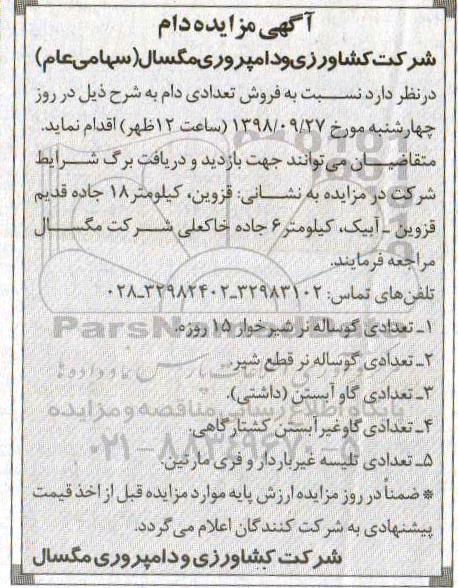 آگهی مزایده دام
شرکت کشاورزی و دامپروری مگسال (سهامی عام)
در نظر دارد نسبت به فروش تعدادی دام به شرح ذیل در روز
چهارشنبه مورخ ۱۳۹۸/۰۹/۲۷ (ساعت ۱۲ ظهر) اقدام نماید.
متقاضیان می‌توانند جهت بازدید و دریافت برگ شرایط
شرکت در مزایده به نشانی: قزوین، کیلومتر ۱۸ جاده قدیم
قزوین ـ آبیک، کیلومتر ۶ جاده خاکعلی شرکت مگسال
مراجعه فرمایند.
تلفن‌های تماس: ۳۲۹۸۳۱۰۲ـ۳۲۹۸۲۴۰۲ـ۰۲۸
۱ـ تعدادی گوساله نر شیرخوار ۱۵ روزه.
۲ـ تعدادی گوساله نر قطع شیر.
۳ـ تعدادی گاو آبستن (داشتی).
۴ـ تعدادی گاو غیر آبستن کشتارگاهی.
۵ـ تعدادی تلیسه غیر باردار و فری مارتین.
* ضمناً در روز مزایده ارزش پایه موارد مزایده قبل از اخذ قیمت
پیشنهادی به شرکت کنندگان اعلام می‌گردد.
شرکت کشاورزی و دامپروری مگسال
ParsNamadData
پایگاه اطلاع رسانی مناقصه و مزایده
۰۲۱-۸۸۳۴۹۶۷۰-۵